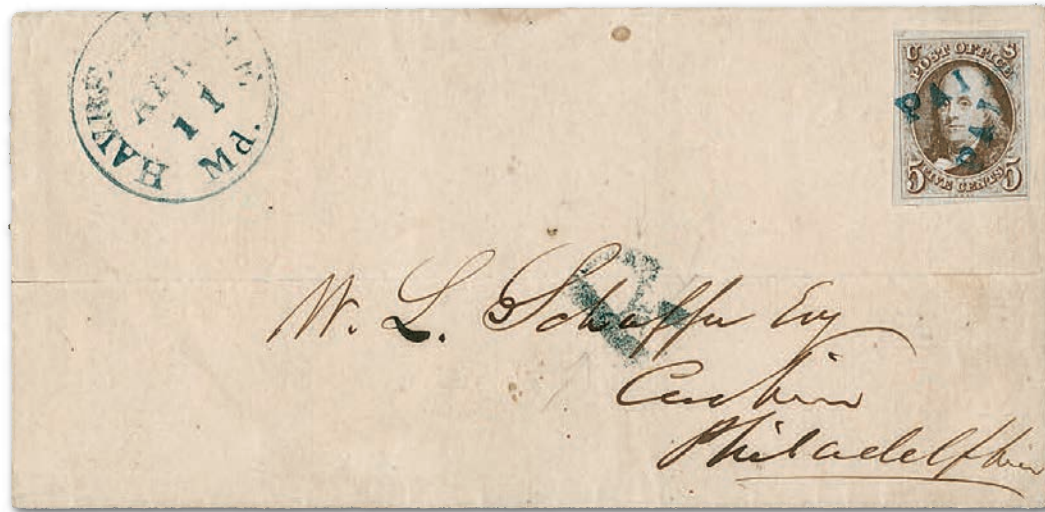 HAVRE DE GRACE Md.
APR
11
U S
POST OFFICE
PAI
PAI
5 FIVE CENTS 5
W. L. Schaffer Esq
Cashier
Philadelphia